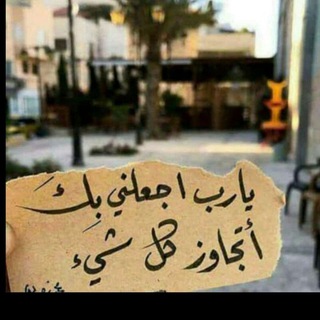 يارب اجعلني بكَ
أتجاوز كل شيء